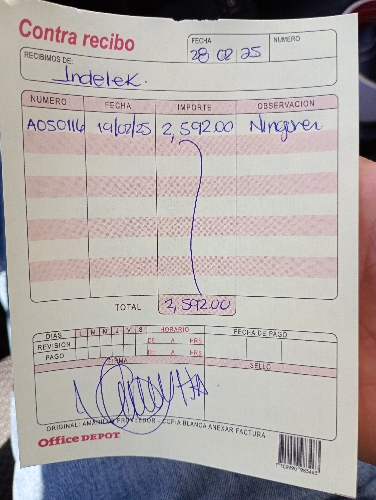 Contra recibo
FECHA
NUMERO
28 02 25
RECIBIMOS DE:
Indelek.
NUMERO FECHA IMPORTE OBSERVACION
A050116 19/02/25 2,592.00
TOTAL 2,592.00
DIAS L M M J V S HORARIO FECHA DE PAGO
REVISION DE A HRS
PAGO DE A HRS
FIRMA SELLO
ORIGINAL: AMARILLO PROVEEDOR - COPIA BLANCA ANEXAR FACTURA
Office DEPOT